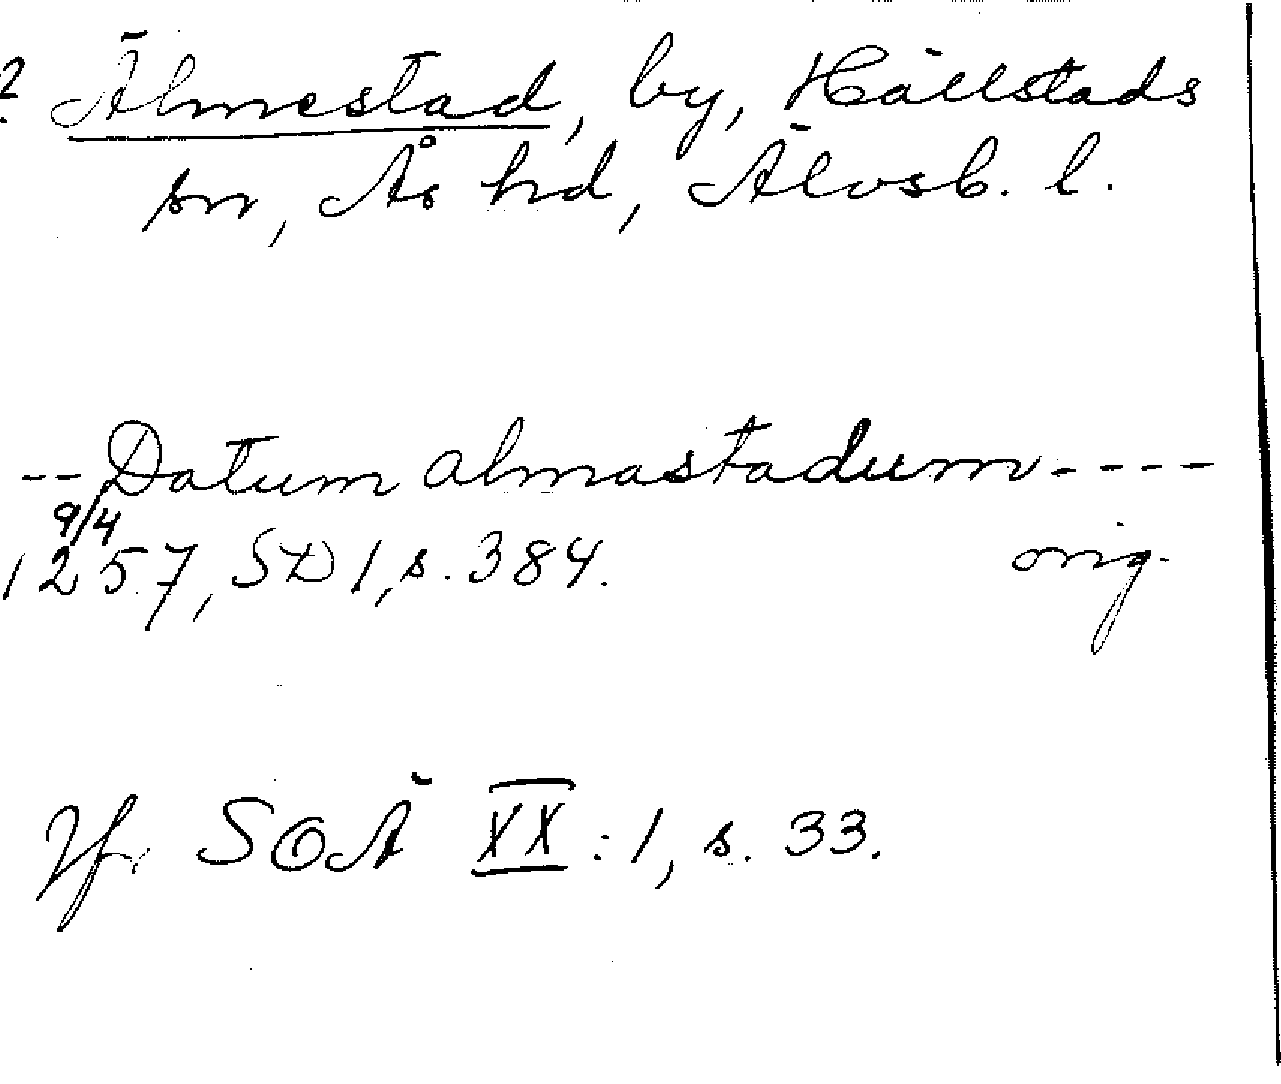 ? Älmestad, by, Hällstads
sn, Ås hd, Älvsb. l.
-- Datum almastadum ----
9/4
1257, SD 1, s. 384. orig.
Jfr SOÄ XX : 1, s. 33.